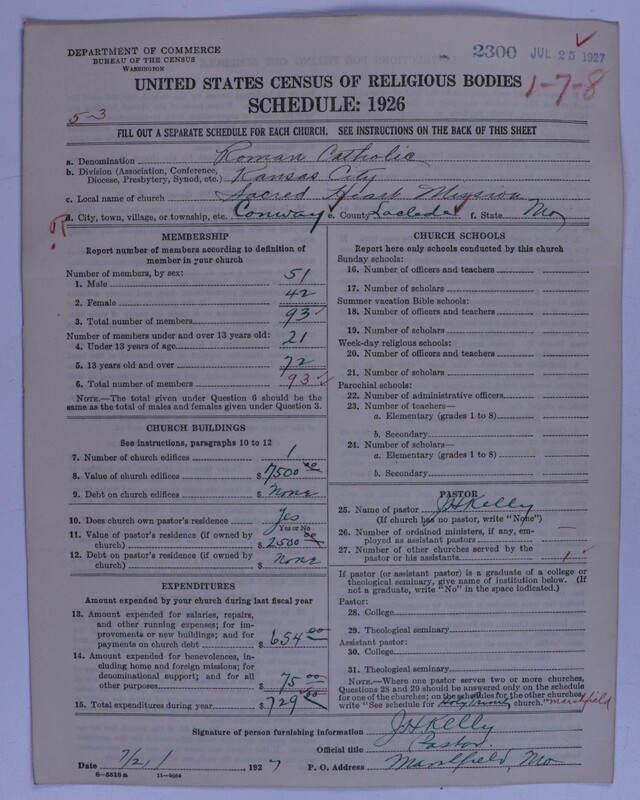 DEPARTMENT OF COMMERCE
BUREAU OF THE CENSUS
WASHINGTON
2300 JUL 25 1927
UNITED STATES CENSUS OF RELIGIOUS BODIES
1-7-8
SCHEDULE: 1926
5-3
FILL OUT A SEPARATE SCHEDULE FOR EACH CHURCH. SEE INSTRUCTIONS ON THE BACK OF THIS SHEET
a. Denomination Roman Catholic
b. Division (Association, Conference, Diocese, Presbytery, Synod, etc.) Kansas City
c. Local name of church Sacred Heart Mission
d. City, town, village, or township, etc. Conway e. County Laclede f. State Mo
MEMBERSHIP
Report number of members according to definition of
member in your church
Number of members, by sex:
1. Male 51
2. Female 42
3. Total number of members 93
Number of members under and over 13 years old:
4. Under 13 years of age 21
5. 13 years old and over 72
6. Total number of members 93
NOTE.—The total given under Question 6 should be
same as the total of males and females given under Question 3.
CHURCH BUILDINGS
See instructions, paragraphs 10 to 12
7. Number of church edifices 1
8. Value of church edifices $ 7500 00
9. Debt on church edifices $ None
10. Does church own pastor's residence Yes
Yes or No
11. Value of pastor's residence (if owned by
church) $ 2500 00
12. Debt on pastor's residence (if owned by
church) $ None
EXPENDITURES
Amount expended by your church during last fiscal year
13. Amount expended for salaries, repairs,
and other running expenses; for im-
provements or new buildings; and for
payments on church debt $ 654 00
14. Amount expended for benevolences, in-
cluding home and foreign missions; for
denominational support; and for all
other purposes $ 75 00
15. Total expenditures during year $ 729 00
CHURCH SCHOOLS
Report here only schools conducted by this church
Sunday schools:
16. Number of officers and teachers
17. Number of scholars
Summer vacation Bible schools:
18. Number of officers and teachers
19. Number of scholars
Week-day religious schools:
20. Number of officers and teachers
21. Number of scholars
Parochial schools:
22. Number of administrative officers
23. Number of teachers—
a. Elementary (grades 1 to 8)
b. Secondary
24. Number of scholars—
a. Elementary (grades 1 to 8)
b. Secondary
PASTOR
25. Name of pastor J H Kelly
(If church has no pastor, write "None")
26. Number of ordained ministers, if any, em-
ployed as assistant pastors —
27. Number of other churches served by the
pastor or his assistants 1
If pastor (or assistant pastor) is a graduate of a college or
theological seminary, give name of institution below. (If
not a graduate, write "No" in the space indicated.)
Pastor:
28. College
29. Theological seminary
Assistant pastor:
30. College
31. Theological seminary
NOTE.—Where one pastor serves two or more churches,
Questions 28 and 29 should be answered only on the schedule
for one of the churches; on the schedules for the other churches
write "See schedule for Holy Trinity church." Marshfield
Signature of person furnishing information J H Kelly
Official title Pastor
Date 7/21, 1927 P. O. Address Marshfield, Mo
8—5518a 11—9684